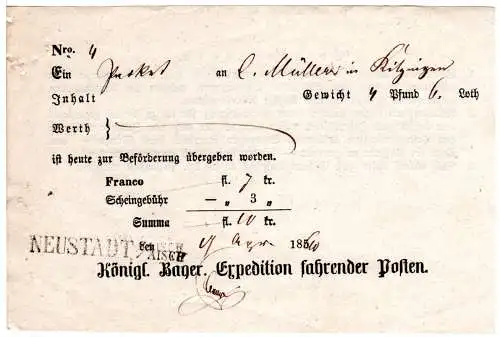 Nro. 4
Ein Packet an C. Müller in Kitzingen
Inhalt Gewicht 4 Pfund 6 Loth
Werth }
ist heute zur Beförderung übergeben worden.
Franco — fl. 7 kr.
Scheingebühr — „ 3 „
Summa — fl. 10 kr.
NEUSTADT A/AISCH den 9 Apr 18
Königl. Bayer. Expedition fahrender Posten.